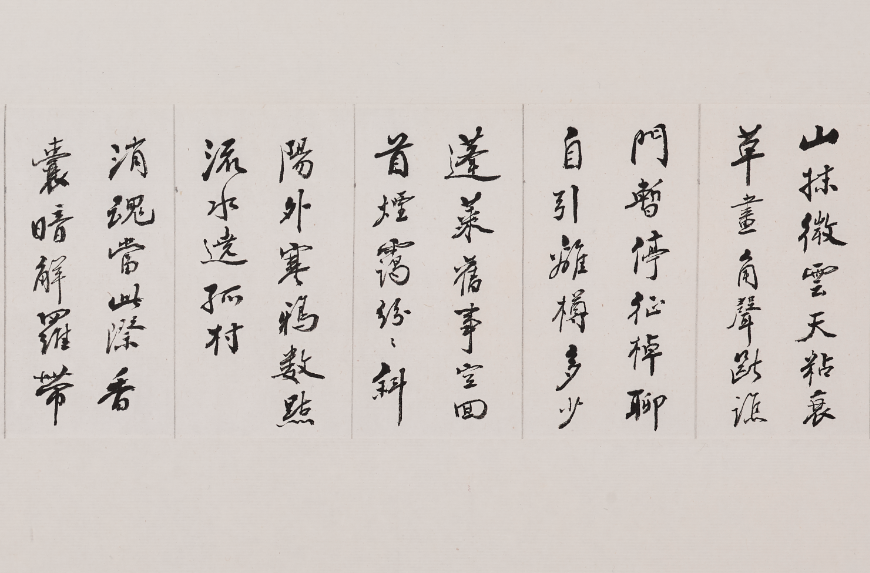 山抹微雲天粘衰
草畫角聲斷譙
門暫停征棹聊
自引離樽多少
蓬萊舊事空回
首煙靄紛〻斜
陽外寒鴉数點
流水遶孤村
消魂當此際香
囊暗解羅帶